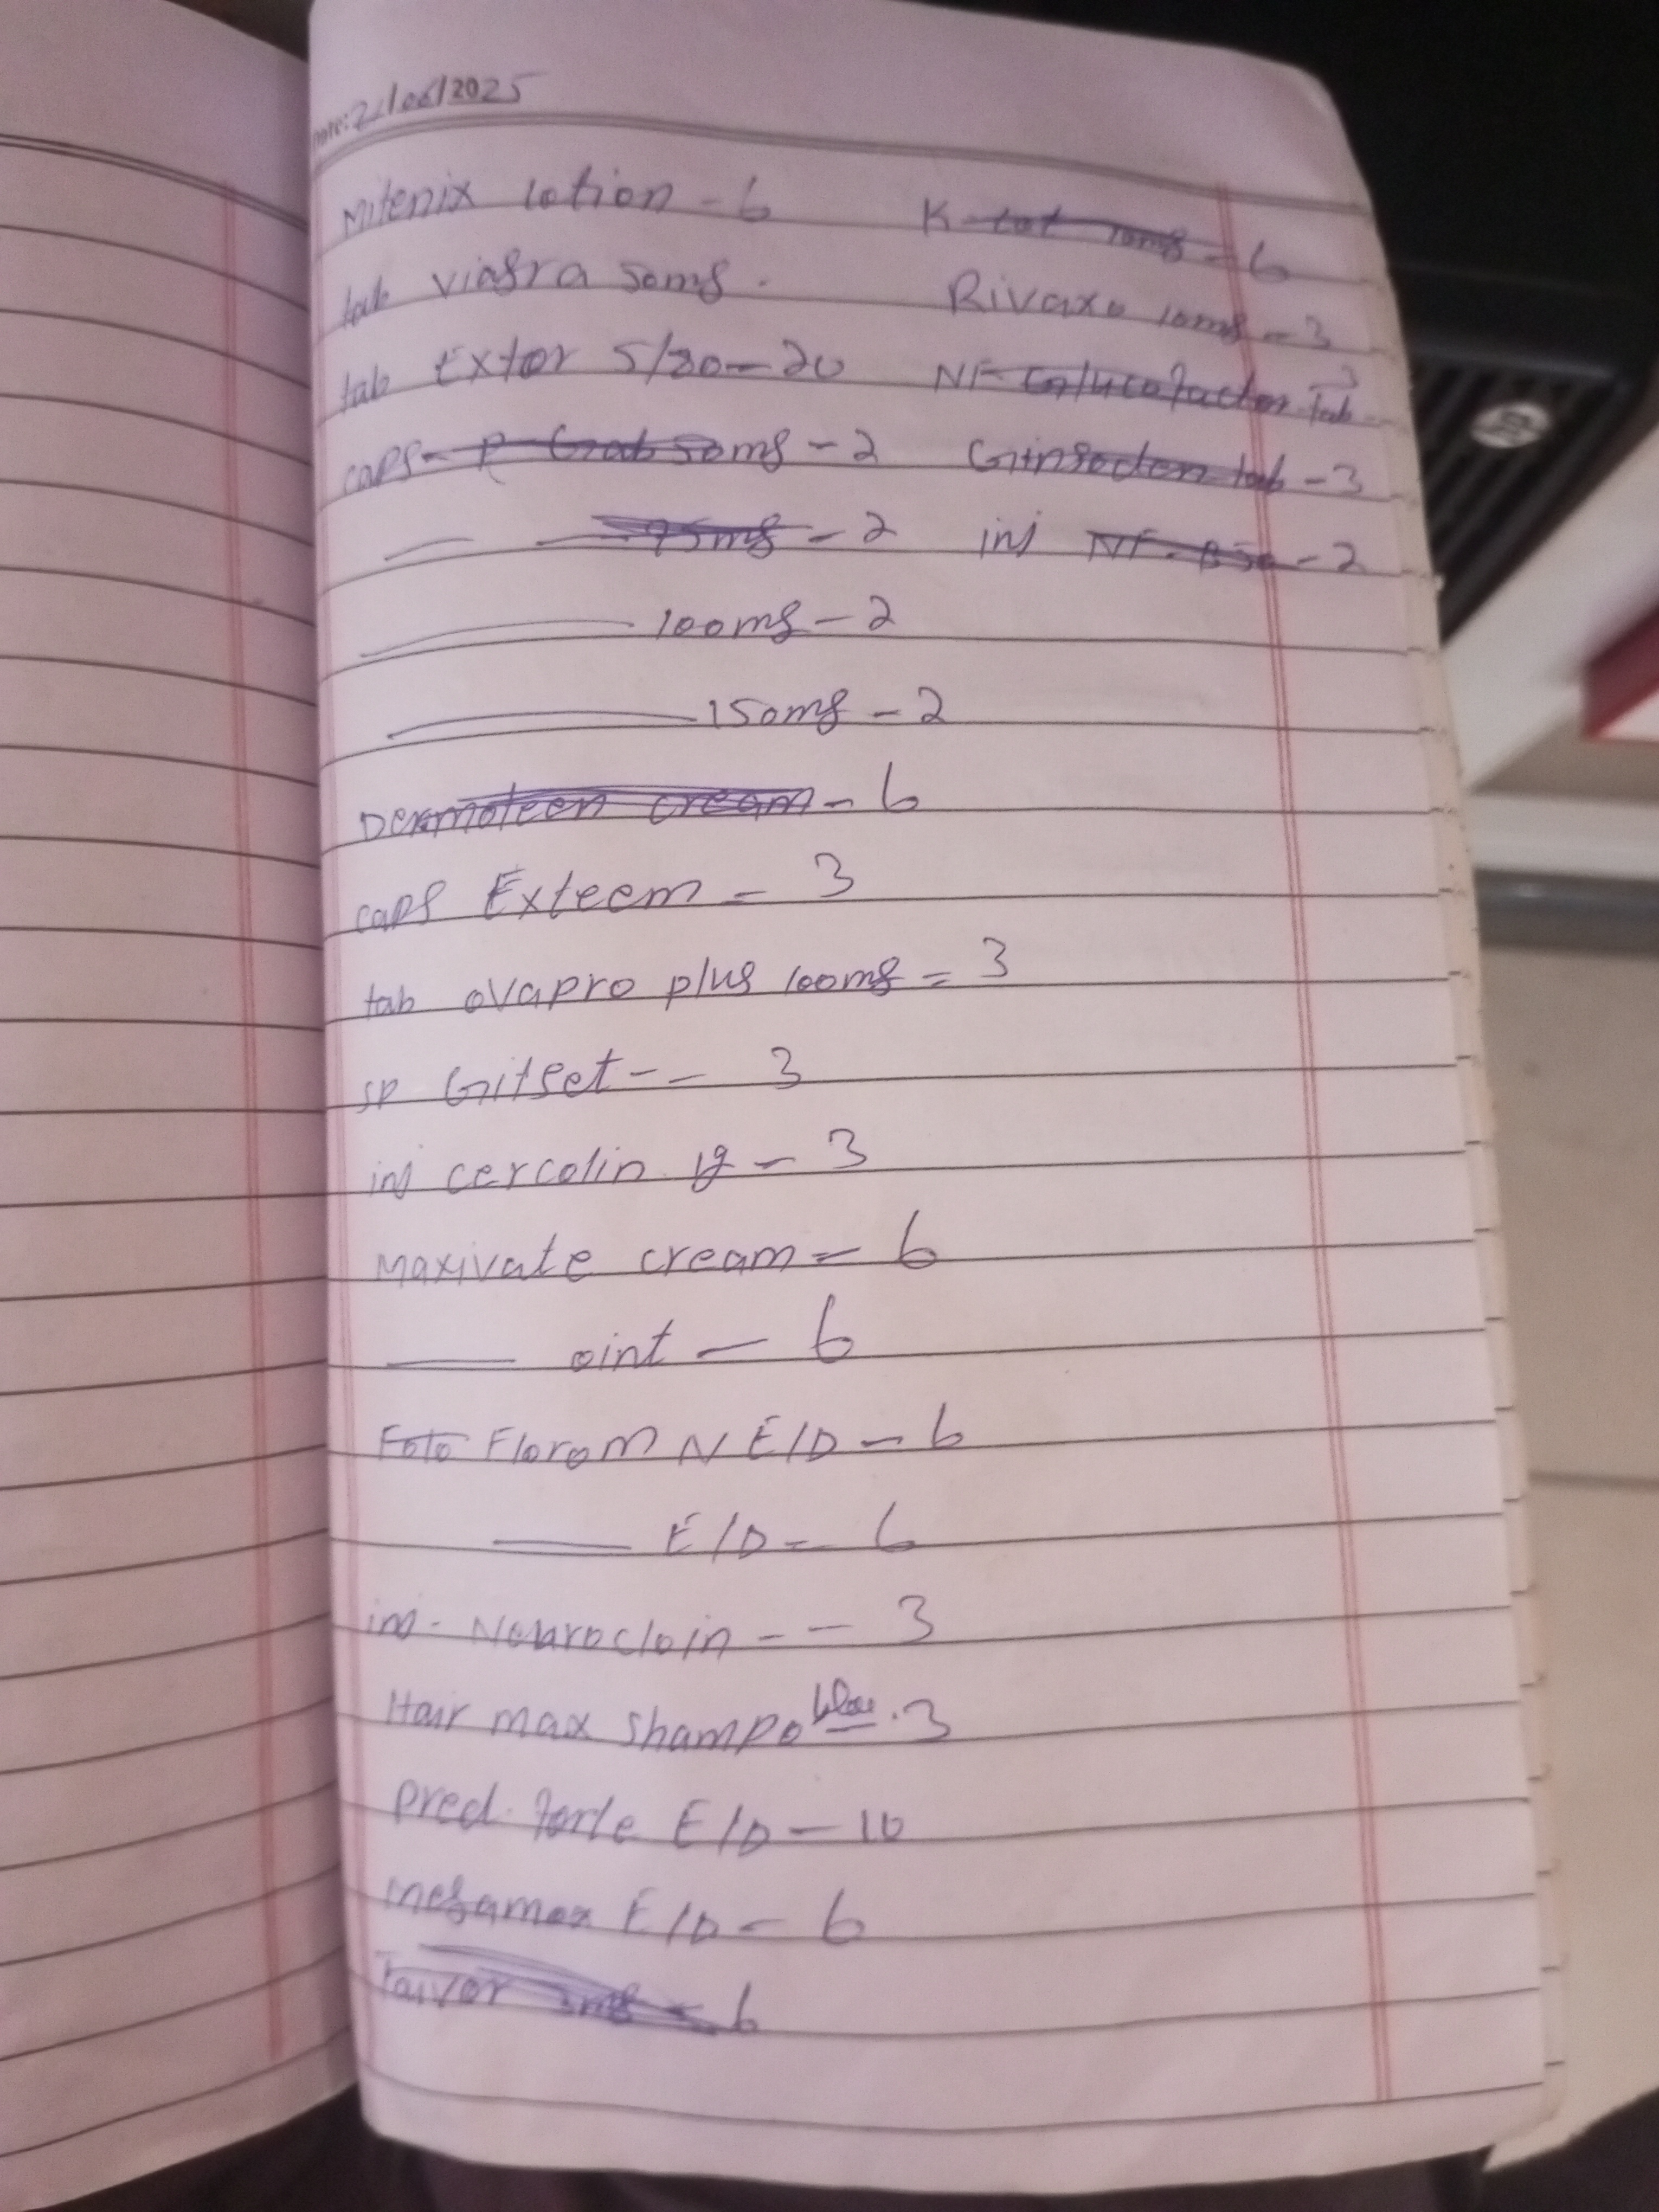 Date: 2/06/2025
Mitenix lotion - 6
tab viagra 50mg.
tab Extor 5/80 - 20
caps - P Gab 50mg - 2
75mg - 2
100mg - 2
150mg - 2
Dermoteen cream - 6
caps Exteem - 3
tab ovapro plus 100mg = 3
sp Gitset - - 3
inj cercolin 1g - 3
Maxivate cream = 6
oint - 6
Foto Florom N E/D - 6
E/D = 6
inj - Neurocloin - - 3
Hair max shampo blue . 3
pred. forte E/D - 10
megamox E/D - 6
Taivor 3mg - 6
K-tot 10mg - 6
Rivaxo 10mg - 3
NF Glucofactor Tab - 3
Ginsoden tab - 3
inj NF - - 2